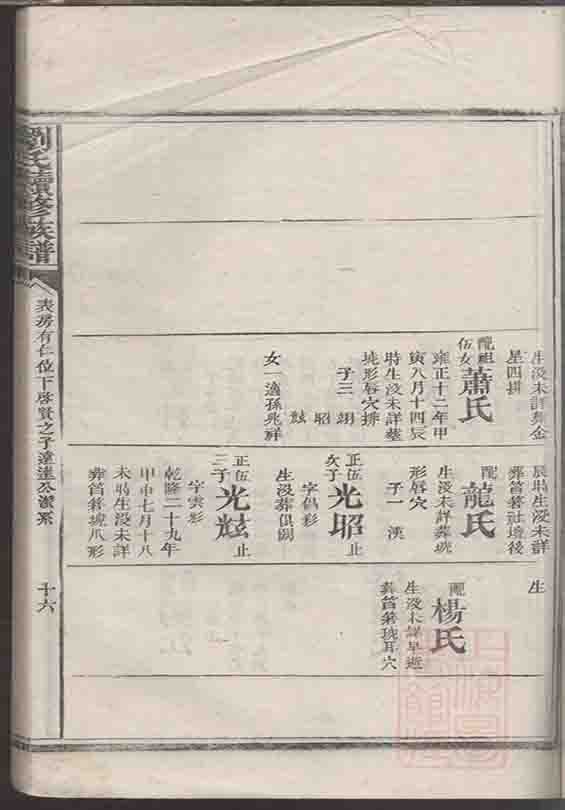 生沒未詳葬金
星四排
配祖
伍女
蕭氏
雍正十二年甲
寅八月十四辰
時生沒未詳墓
形唇穴排
子三
翊
昭
炫
女一適孫兆祥
辰時生沒未詳
葬筲箕社壇後
配
龍氏
生沒未詳葬琥
形唇穴
子一 漢
正伍
次子
光昭
止
字侣彩
生沒葬俱闕
正伍
三子
光炫
止
字雲彩
乾隆二十九年
甲申七月十八
未時生沒未詳
葬筲箕塊爪形
生
配
楊氏
生沒未詳早逝
葬筲箕琥耳穴
劉氏續修族譜
表房有仁位下啓賢之子達達公濙系
十六